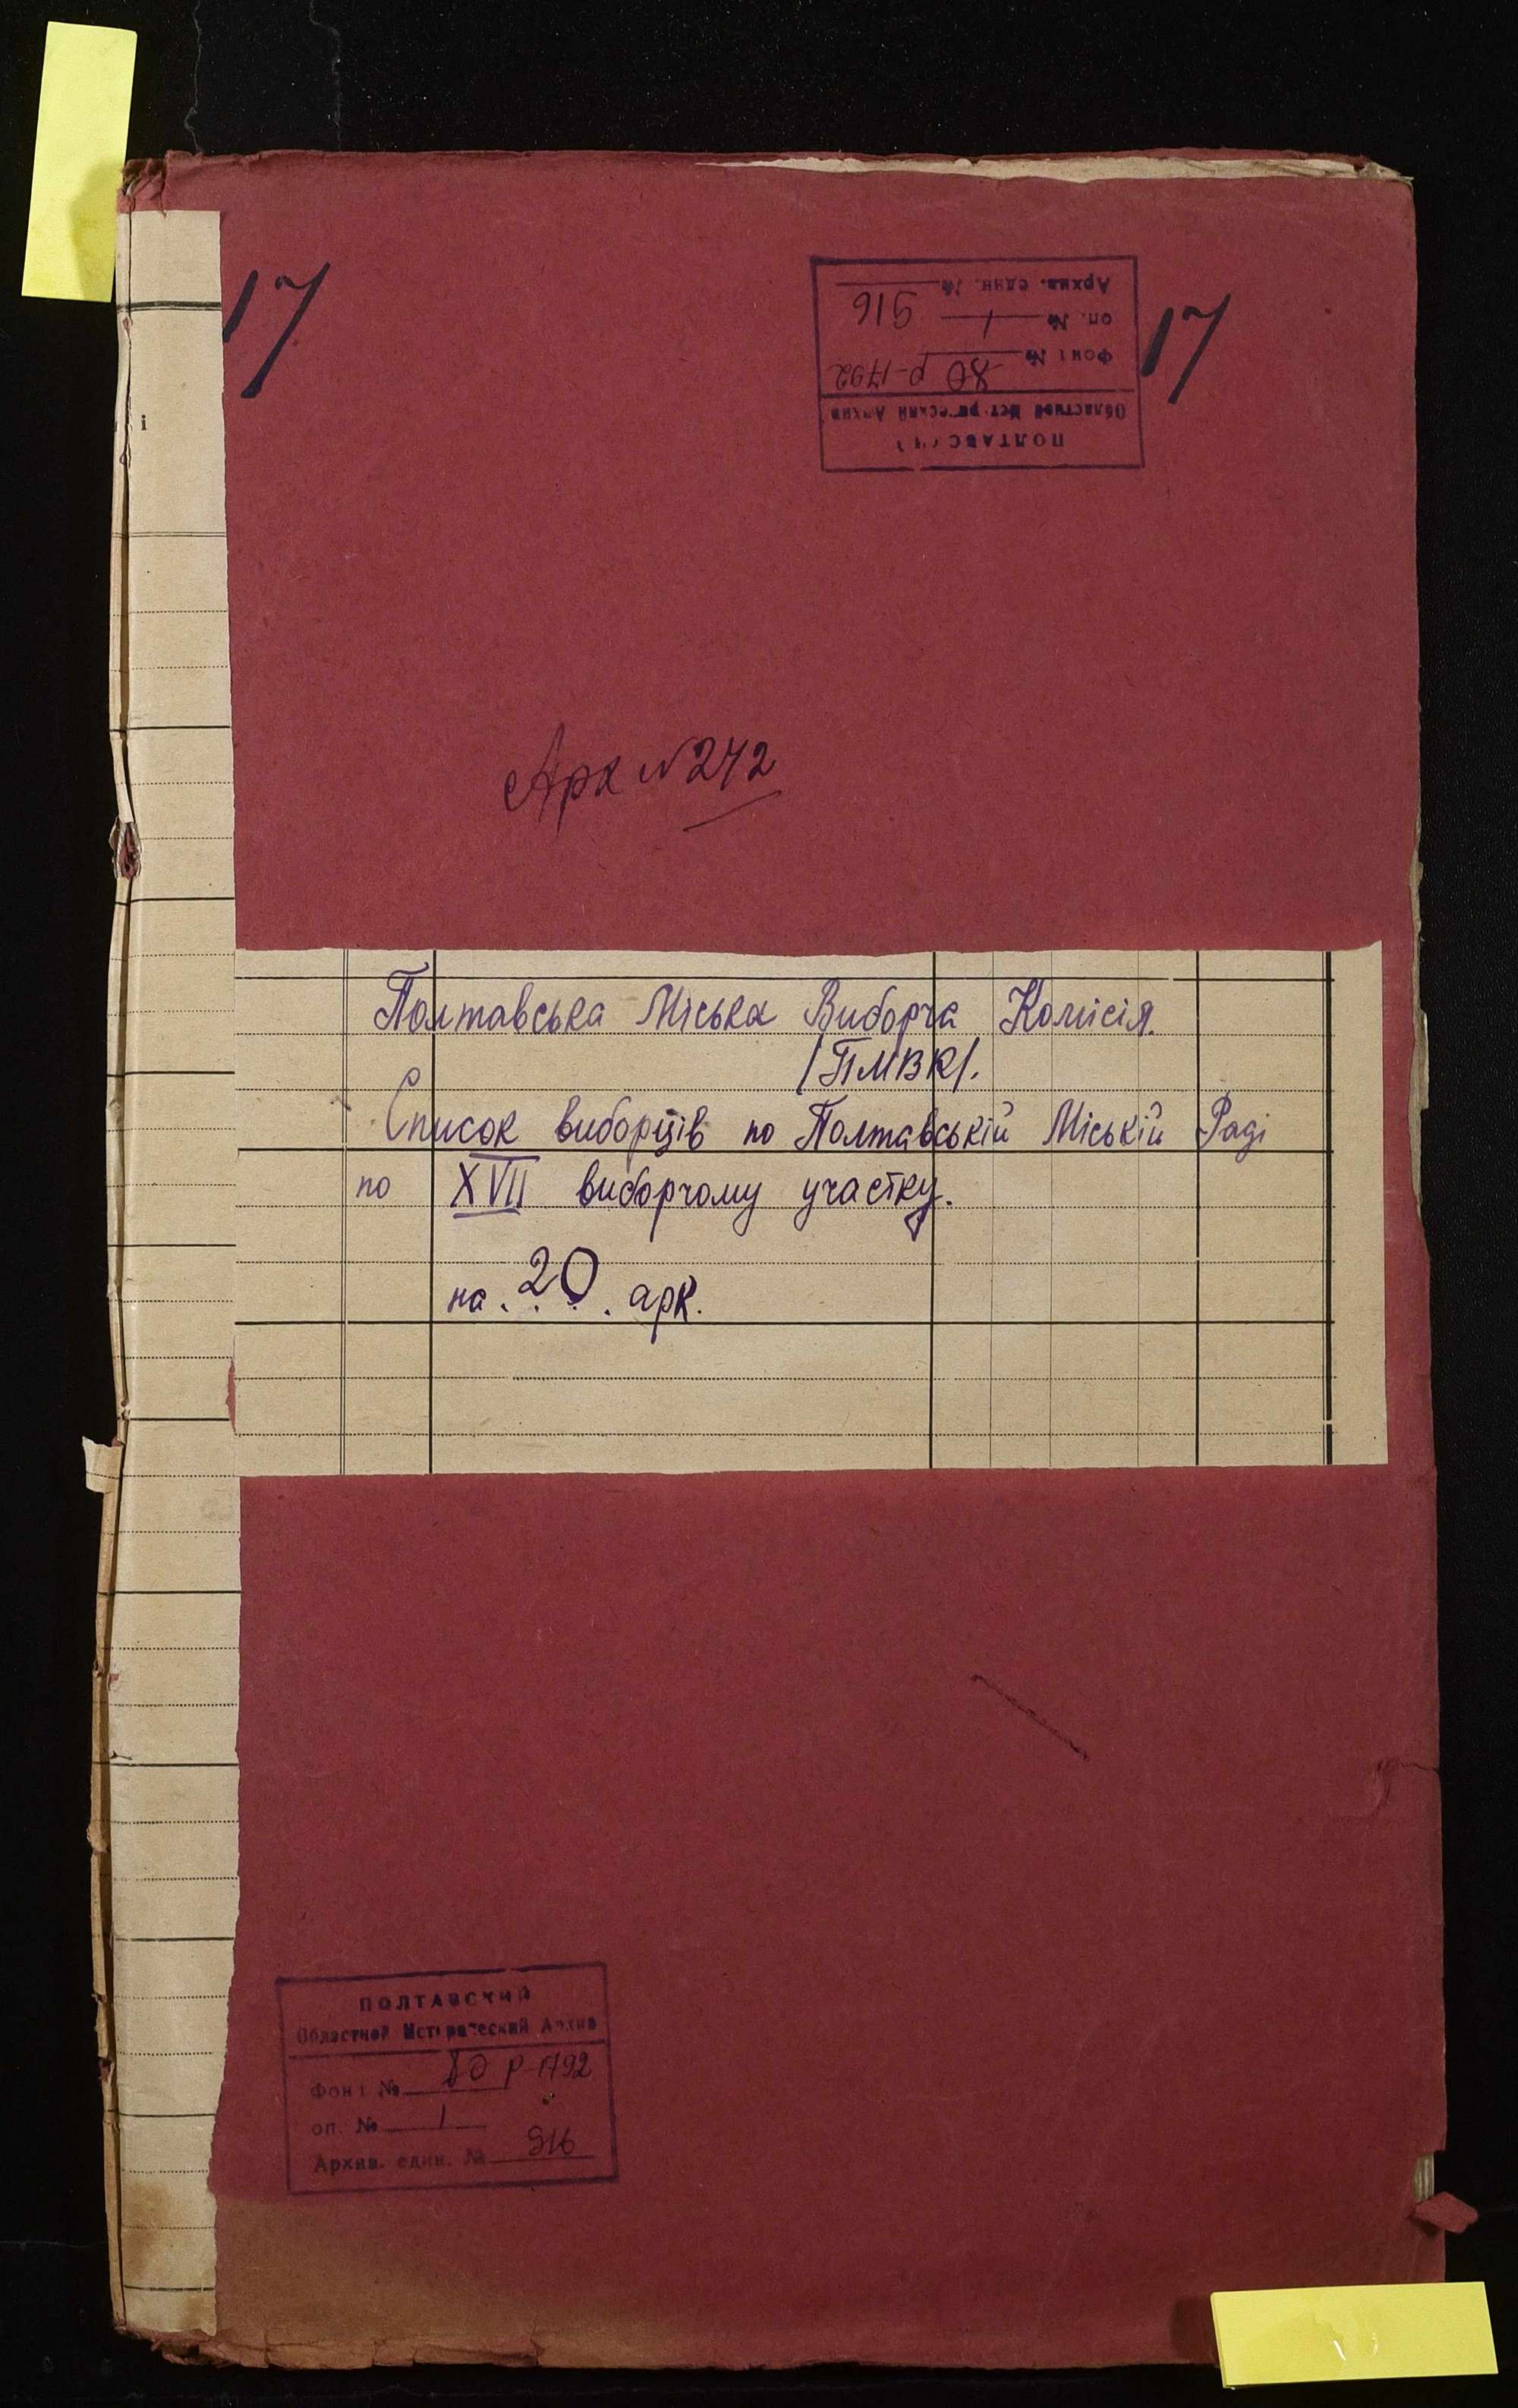 17
17
ПОЛТАВСКИЙ
Областной Исторический Архив
Фонд № 80 Р-1792
оп. № 1
Архив. един. № 916
Арк N 242
Полтавська Міська Виборча Комісія.
/ПМВК/.
Список виборців по Полтавській Міській Раді
по XVII виборчому участку.
на . 20 . арк.
ПОЛТАВСКИЙ
Областной Исторический Архив
Фонд № 80 Р-1792
оп. № 1
Архив. един. № 916
і